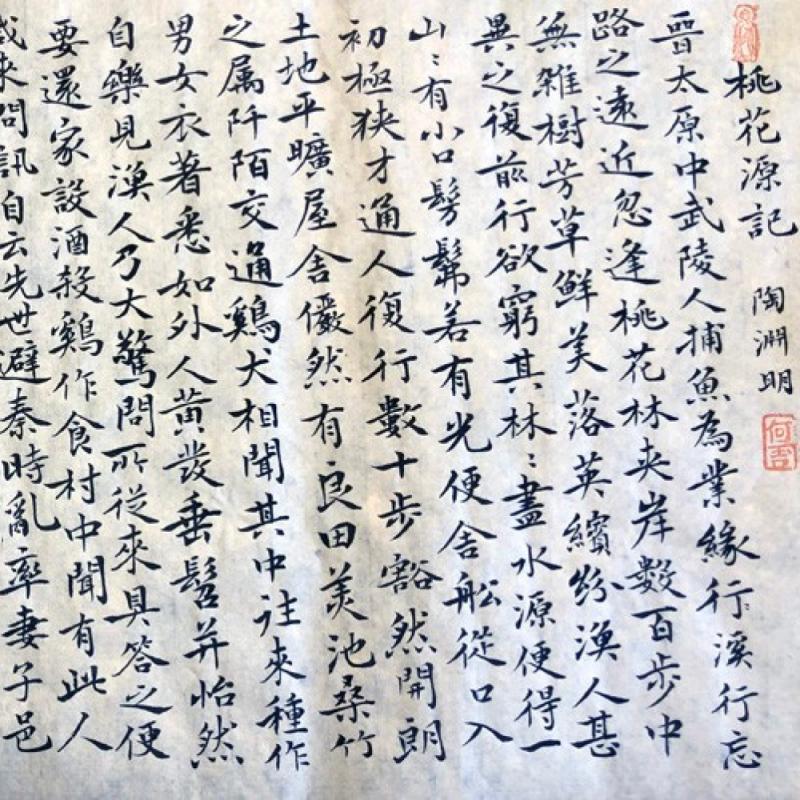 桃花源記 陶淵明
晉太原中武陵人捕魚為業緣行溪行忘
路之遠近忽逢桃花林夾岸數百步中
無雜樹芳草鮮美落英繽紛漁人甚
異之復前行欲窮其林〻盡水源便得一
山〻有小口髣髴若有光便舍船從口入
初極狹才通人復行數十步豁然開朗
土地平曠屋舍儼然有良田美池桑竹
之属阡陌交通鷄犬相聞其中往來種作
男女衣著悉如外人黄發垂髫并怡然
自樂見漁人乃大驚問所從來具答之便
要還家設酒殺鷄作食村中聞有此人
咸來問訊自云先世避秦時亂率妻子邑